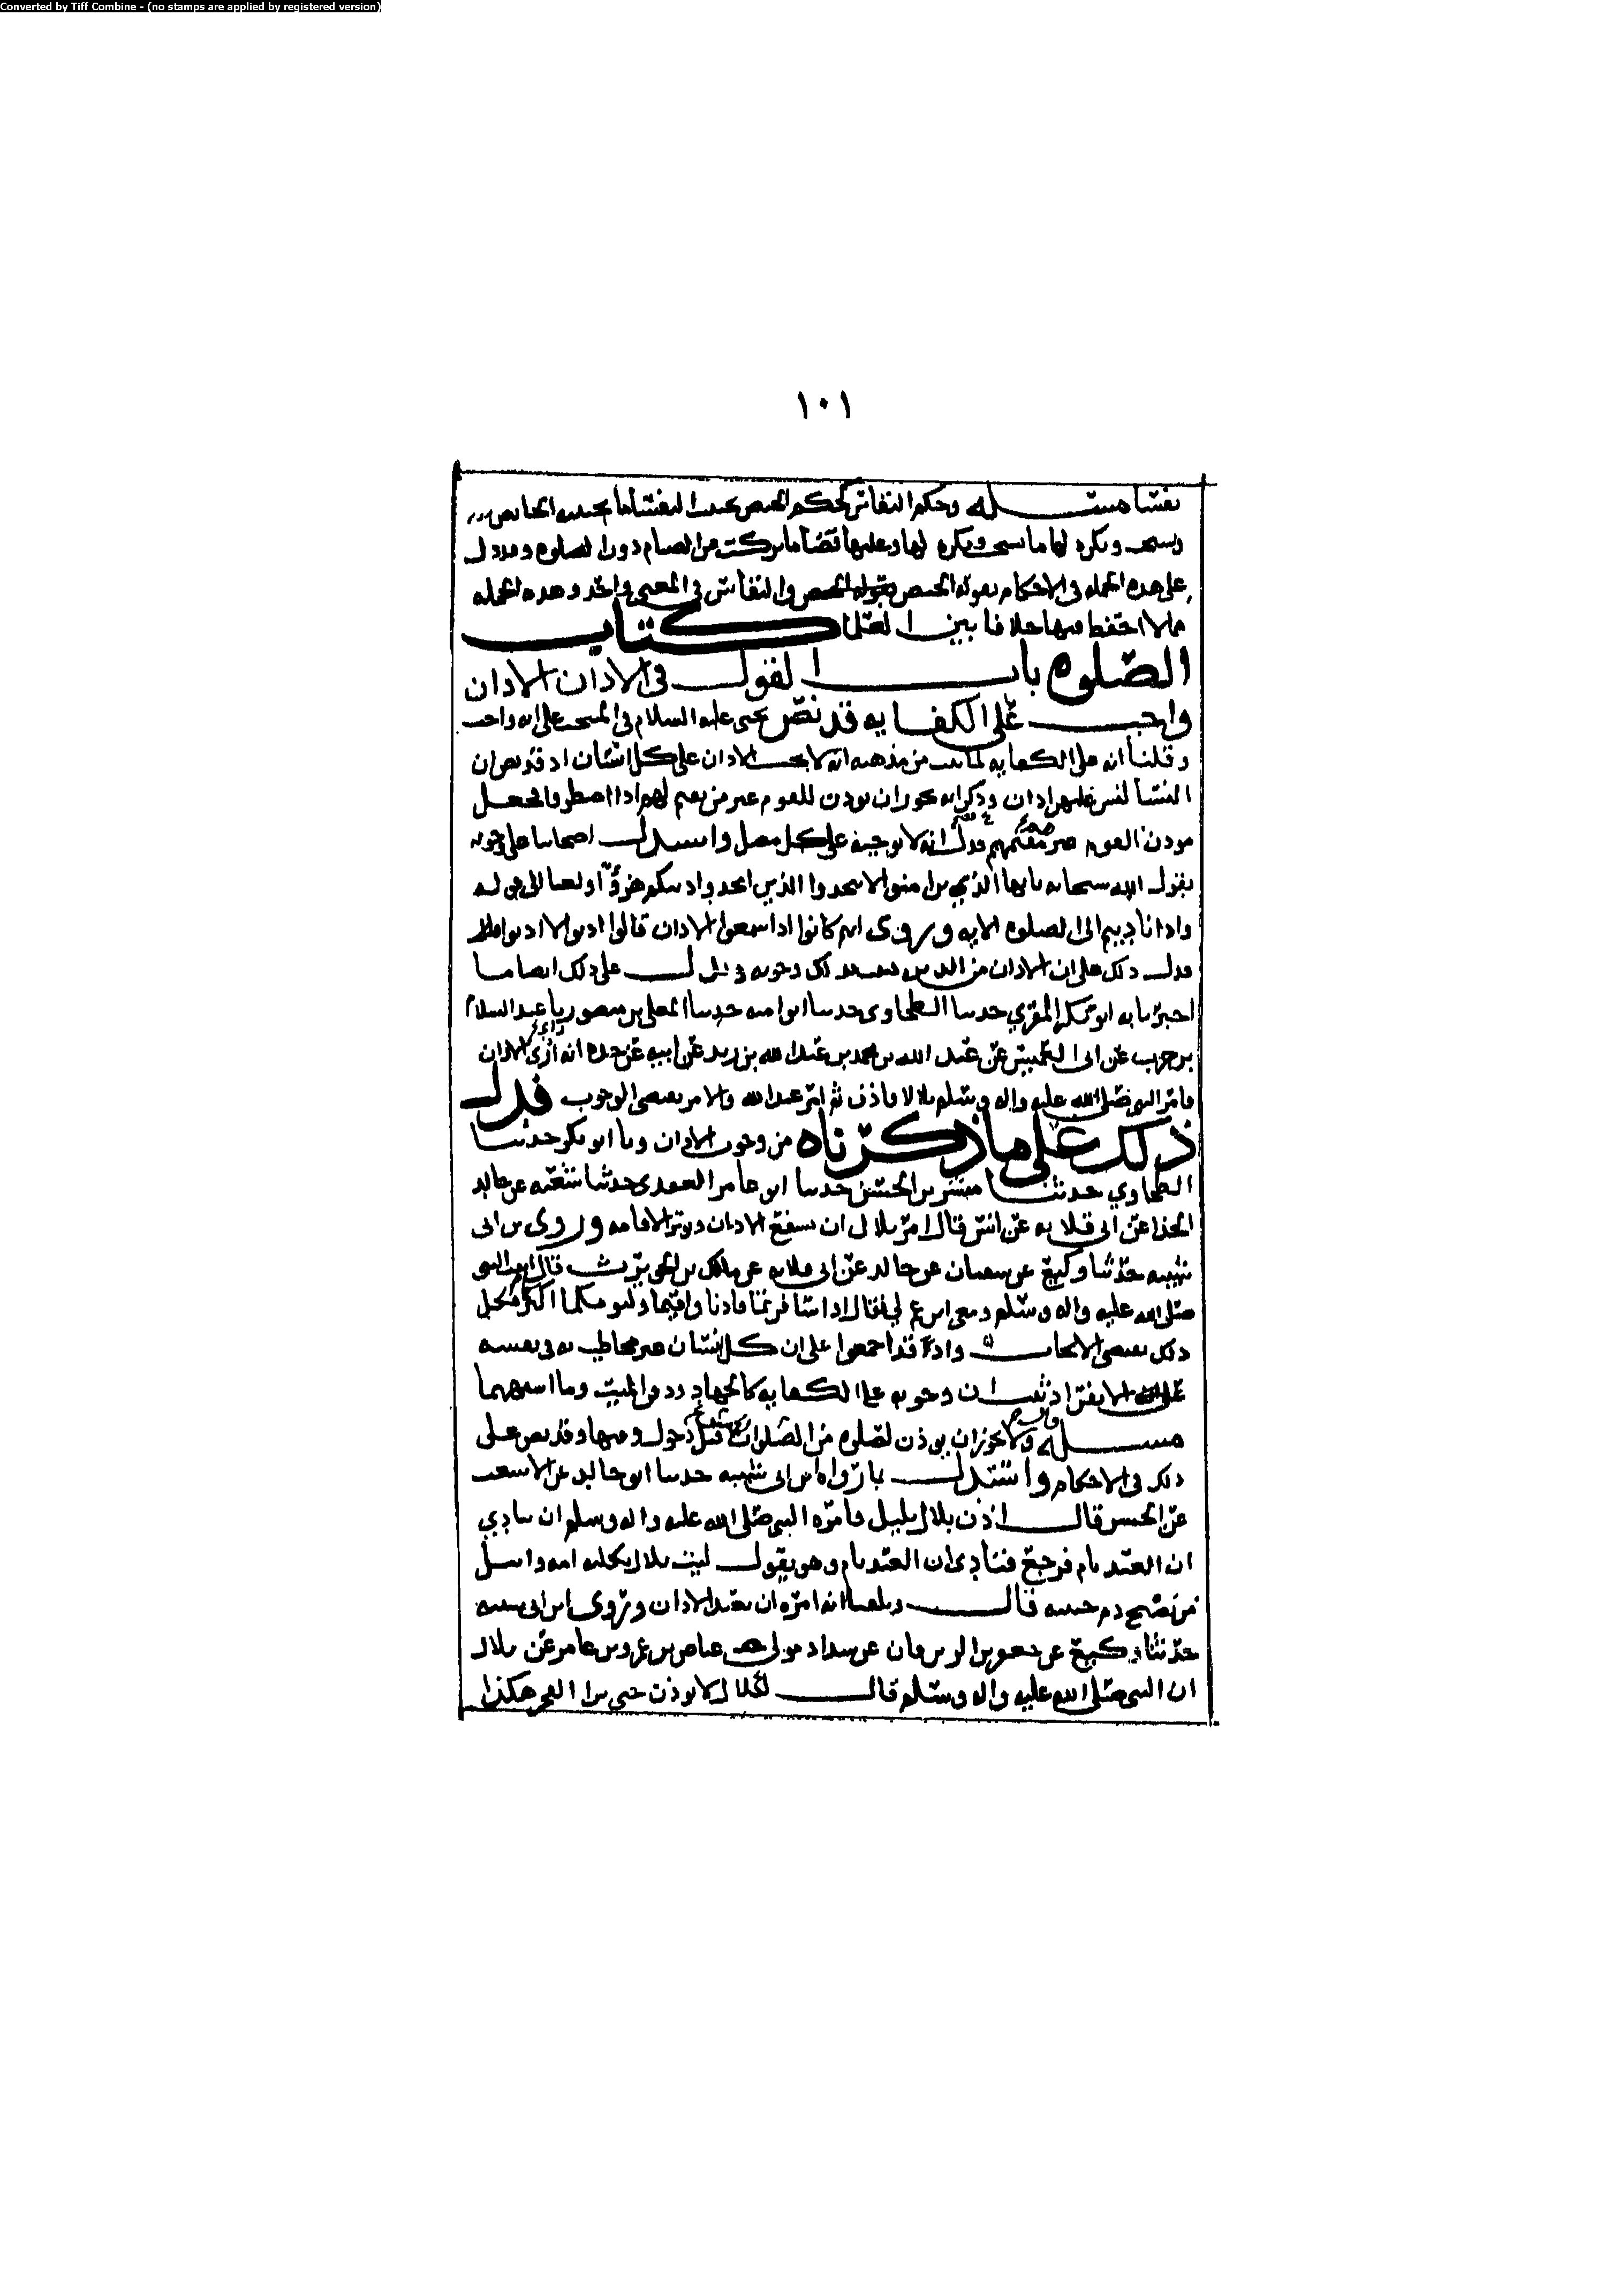 Converted by Tiff Combine - (no stamps are applied by registered version)
١٠١
نفسا مسئله وحكم النفاس كحكم الحيض يجب النفسا ما يجنبه الحايض
ويستحب ويكره لها ما يستحب ويكره لها وعليها قضا ما تركت من الصيام دون الصلوه وقد دل
على هذه الجمله في الاحكام بقوله الحيض والنفاس في المعنى واحد وهذه الجمله
مما لا احفظ فيها خلافا بين العلما كتاب
الصلوه باب القول في الاذان الاذان
واجب على الكفايه قد نص يحيى عليه السلام في المنتخب على انه واجب
وقلنا انه على الكفايه لما ثبت من مذهبه انه لا يجب الاذان على كل انسان اذ قد نص ان
النسا ليس عليهن اذان وذكر انه يجوز ان يوذن للقوم غير من يقيم لهم اذا اضطروا فجعل
موذن القوم غير مقيمهم فدل انه لا يوجبه على كل مصل واستدل اصحابنا على وجوبه
بقول الله سبحانه يايها الذين امنوا لا تتخذوا الذين اتخذوا دينكم هزوا ولعبا الى قوله
واذا ناديتم الى الصلوه الايه وروى انهم كانوا اذا سمعوا الاذان قالوا
فدل ذلك على ان الاذان من الدين وجوبه ويدل على ذلك ايضا ما
اخبرنا به ابو بكر المقري حدثنا الطحاوى حدثنا ابو اميه حدثنا المعلى بن منصور نا عبد السلام
بن حرب عن ابى العميس عن عبد الله بن محمد بن عبد الله بن زيد عن ابيه عن جده انه ارى الاذان
فامر النبي صلى الله عليه واله وسلم بلالا فاذن ثم امر عبد الله والامر يقتضى الوجوب فدل
ذلك على ما ذكرناه من وجوب الاذان ونا ابو بكر حدثنا
الطحاوي حدثنا مبشر بن الحسن حدثنا ابو عامر العقدى حدثنا شعبه عن خالد
الحذا عن ابى قلابه عن انس قال امر بلال ان يشفع الاذان ويوتر الاقامه وروى بن ابى
شيبه حدثنا وكيع عن سفيان عن خالد عن ابى قلابه عن مالك بن الحويرث قال اتيت النبي
صلى الله عليه واله وسلم ومعى ابن عم لي فقال اذا سافرتما فاذنا واقيما وليومكما اكبركما وكل
ذلك يقتضى الايجاب واذ قد اجمعوا على ان كل انسان غير مخاطب به في نفسه
على الانفراد ثبت ان وجوبه على الكفايه كالجهاد ودفن الميت وما اشبههما
مسئله ولا يجوز ان يوذن لصلوه من الصلوات قبل دخول وقتها وقد نص على
ذلك في الاحكام واستدل بما رواه ابن ابى شيبه حدثنا ابو خالد عن الاشعث
عن الحسن قال اذن بلال بليل فامره النبى صلى الله عليه واله وسلم ان ينادي
ان العبد نام فرجع فنادى ان العبد نام وهو يقول ليت بلال ثكلته امه وابتل
من نضح دم جبينه قال وبلغنا انه امره ان يعيد الاذان وروى ابن ابى شيبه
حدثنا وكيع عن جعفر بن برقان عن شداد مولى عياض بن عامر عن بلال
ان النبى صلى الله عليه واله وسلم قال لبلال لا توذن حتى ترا الفجر هكذا